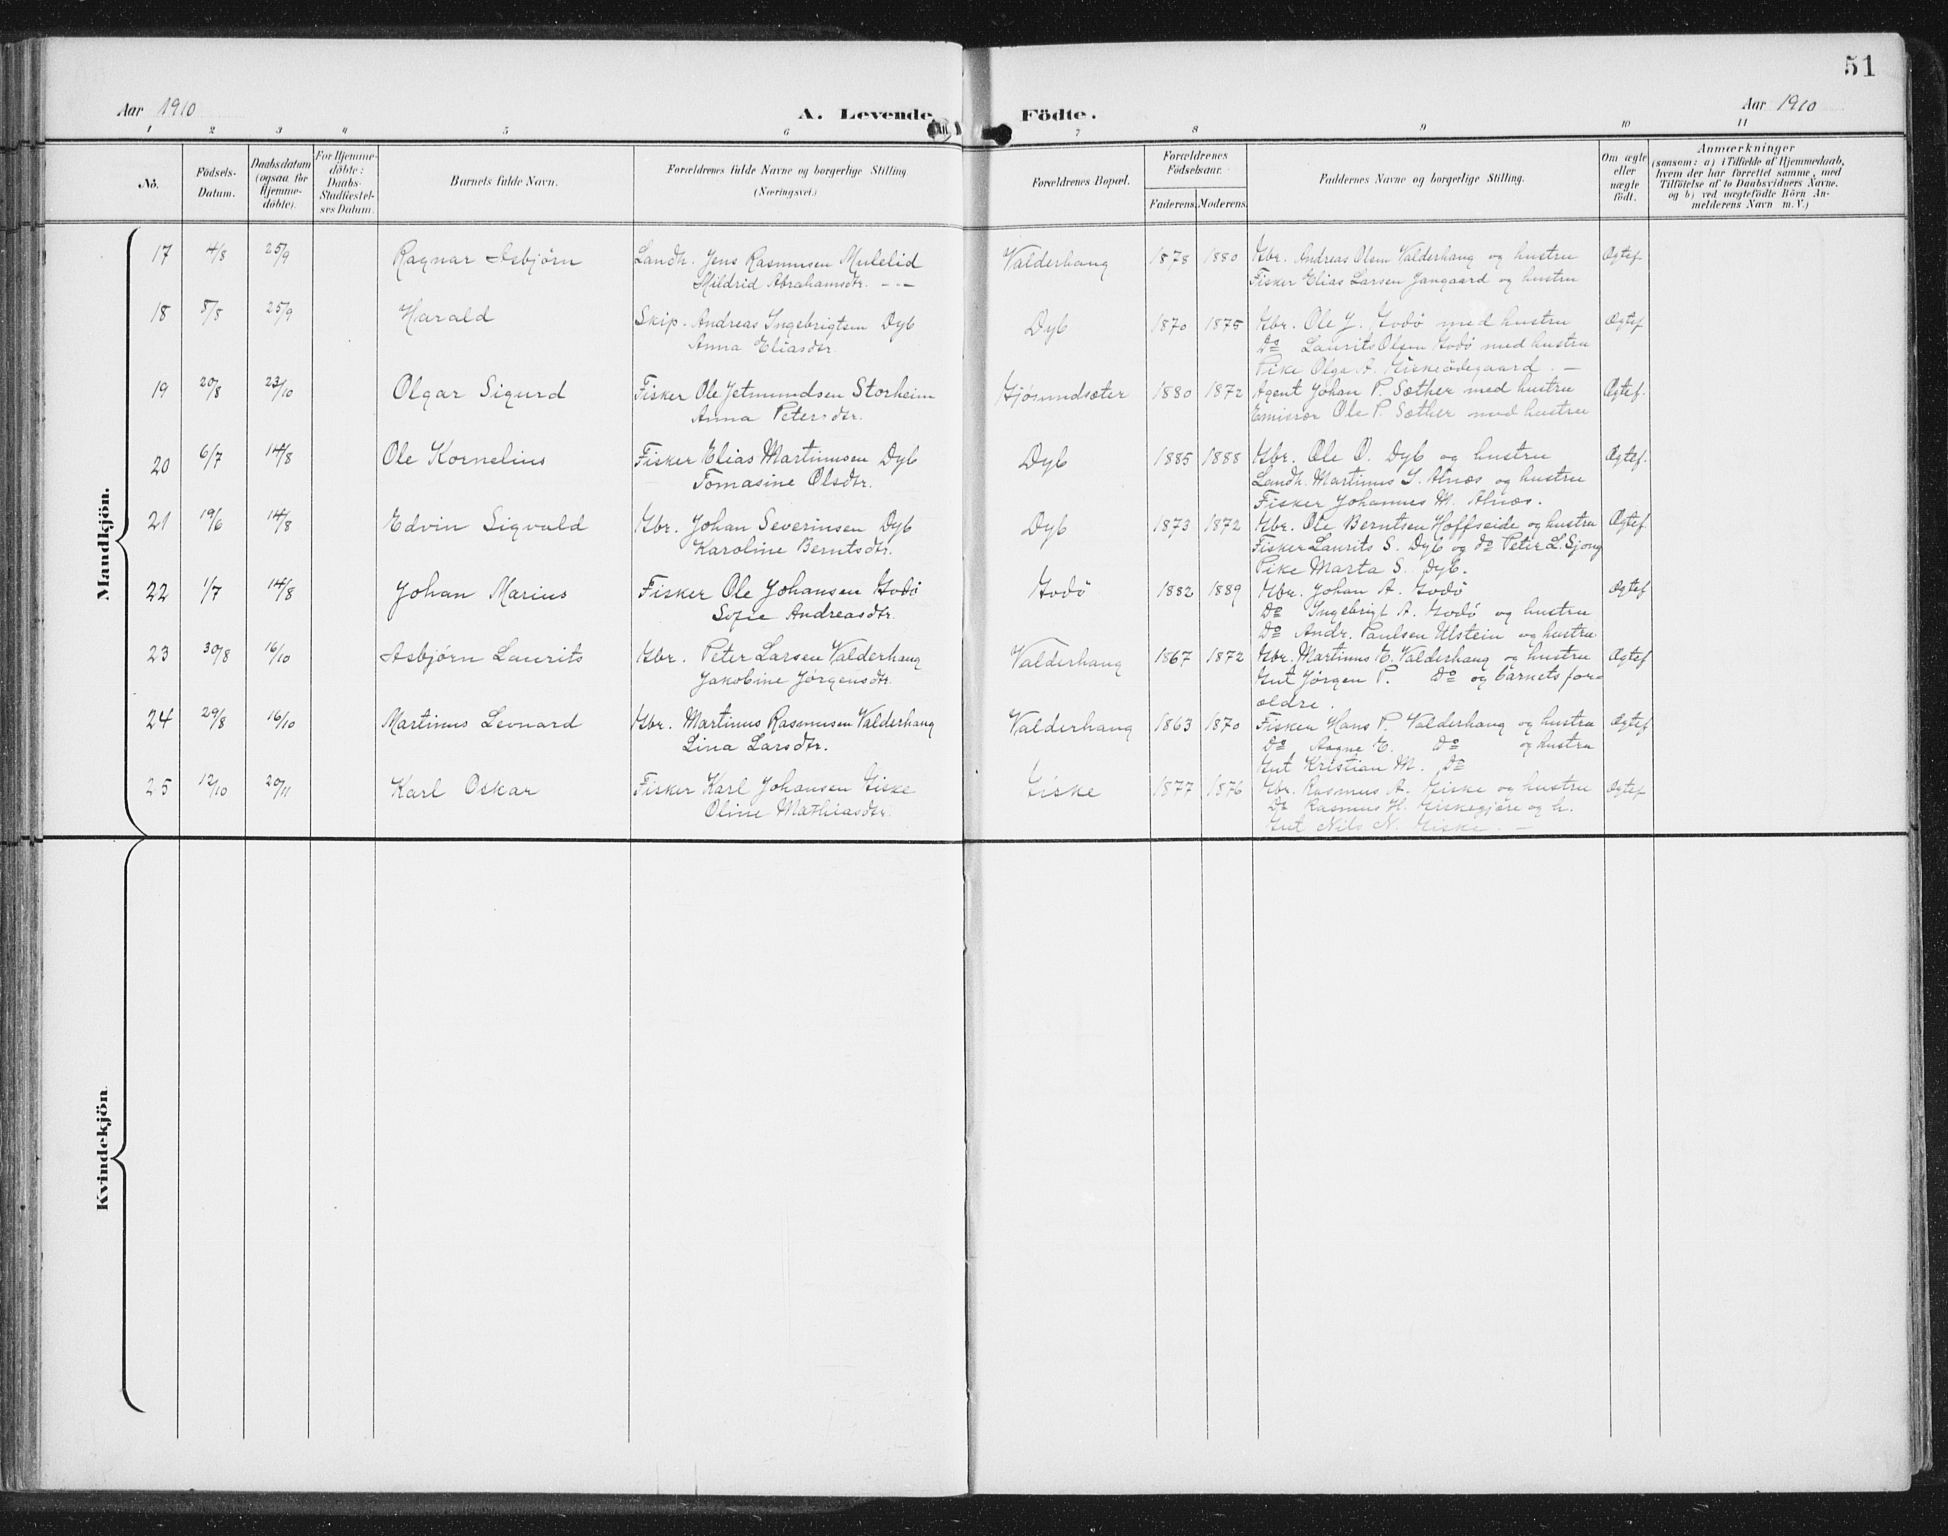 51
Aar 1910 A. Levende Födte. Aar 1910
1 2 3 4 5 6 7 8 9 10 11
No. Födsels-Datum. Daabsdatum (ogsaa for Hjemme-döbte). For Hjemme-döbte: Daabs-Stadfæstel-ses Datum. Barnets fulde Navn. Forældrenes fulde Navne og borgerlige Stilling (Næringsvei.) Forældrenes Bopæl. Forældrenes Födselsaar. Faderens. Moderens. Faddernes Navne og borgerlige Stilling. Om ægte eller uægte födt. Anmærkninger (saasom: a) i Tilfælde af Hjemmedaab, hvem der har forrettet samme, med Tilföielse af to Daabsvidners Navne. og b) ved uægtefödte Börn An-melderens Navn m. V.)
Mandkjön.
17 4/8 25/9 Ragnar Asbjørn Landh. Jens Rasmusen Mulelid Valderhaug 1878 1880 Gbr. Andreas Olsen Valderhaug og hustru Ægtef
Mildrid Abrahamsdtr. -"- Fisker Elias Larsen Jangaard og hustru
18 5/8 25/9 Harald Skip. Andreas Ingebrigtsen Dyb Dyb 1870 1875 Gbr. Ole J. Godø med hustru Ægtef
Anna Eliasdtr. Do Laurits Olsen Godø med hustru
Pike Olga A. Giskeødegaard. -
19 20/8 23/10 Olgar Sigurd Fisker Ole Jetmundsen Storheim Gjøsundsæter 1880 1872 Agent Johan P. Sæther med hustru Ægtef.
Anna Petersdtr. Emisær Ole P. Sæther med hustru
20 6/7 14/8 Ole Kornelius Fisker Elias Martinusen Dyb Dyb 1885 1888 Gbr. Ole O. Dyb og hustru Ægtef.
Tomasine Olsdtr. Landh. Martinus J. Alnæs og hustru
Fisker Johannes M. Alnæs.
21 19/6 14/8 Edvin Sigvald Gbr. Johan Severinsen Dyb Dyb 1873 1872 Gbr. Ole Berntsen Hoffseide og hustru Ægtef.
Karoline Berntsdtr. Fisker Laurits S. Dyb og do Peter L. Sjong
Pike Marta S. Dyb.
22 1/7 14/8 Johan Marius Fisker Ole Johansen Godø Godø 1882 1889 Gbr. Johan A. Godø Ægtef
Sofie Andreasdtr. Do Ingebrigt A. Godø og hustru
Do Andr. Paulsen Ulstein og hustru.
23 30/8 16/10 Asbjørn Laurits Gbr. Peter Larsen Valderhaug Valderhaug 1867 1872 Gbr. Martinus E. Valderhaug og hustru Ægtef
Jakobine Jørgensdtr. Gut Jørgen P. Do og barnets for-
ældre.
24 29/8 16/10 Martinus Leonard Gbr. Martinus Rasmusen Valderhaug Valderhaug 1863 1870 Fisker Hans P. Valderhaug og hustru Ægtef
Lina Larsdtr. Do Aagne E. Do og hustru
Gut Kristian M. Do
25 12/10 20/11 Karl Oskar Fisker Karl Johansen Giske Giske 1877 1876 Gbr. Rasmus A. Giske og hustru Ægtef
Oline Mathiasdtr. Do Rasmus H. Giskegjøre og h.
Gut Nils N. Giske. -
Kvindekjön.